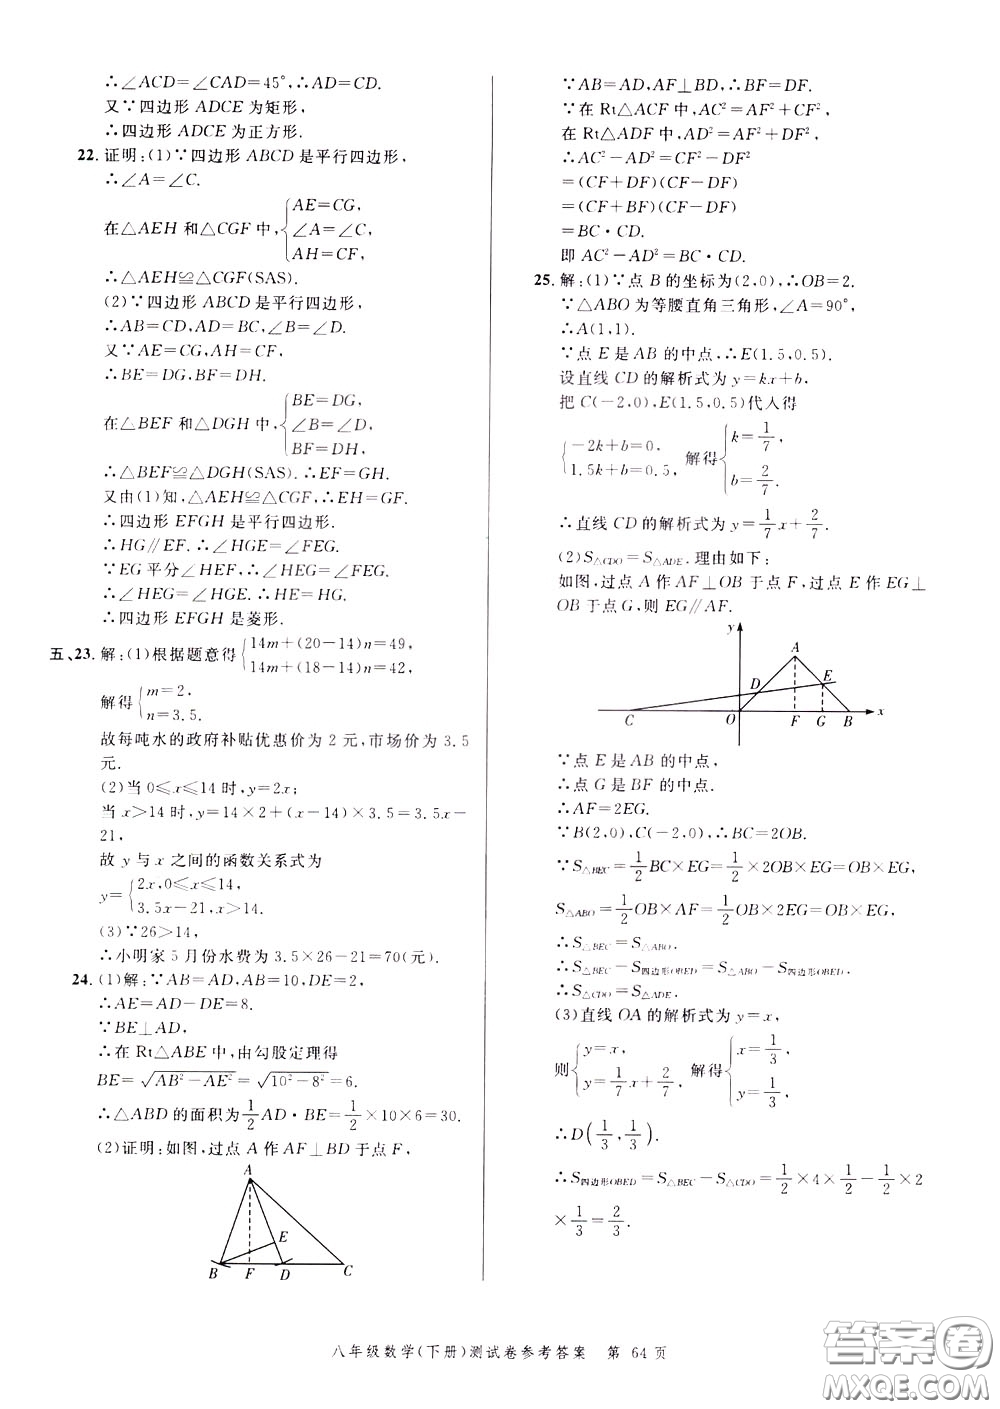 ∴∠ACD=∠CAD=45°,∴AD=CD.
又∵四边形 ADCE 为矩形,
∴四边形 ADCE 为正方形.
22. 证明:(1)∵四边形 ABCD 是平行四边形,
∴∠A=∠C.
在△AEH 和△CGF 中,{AE=CG,
∠A=∠C,
AH=CF,
∴△AEH≌△CGF(SAS).
(2)∵四边形 ABCD 是平行四边形,
∴AB=CD,AD=BC,∠B=∠D.
又∵AE=CG,AH=CF,
∴BE=DG,BF=DH.
在△BEF 和△DGH 中,{BE=DG,
∠B=∠D,
BF=DH,
∴△BEF≌△DGH(SAS). ∴EF=GH.
又由(1)知,△AEH≌△CGF,∴EH=GF.
∴四边形 EFGH 是平行四边形.
∴HG∥EF. ∴∠HGE=∠FEG.
∵EG 平分∠HEF,∴∠HEG=∠FEG.
∴∠HEG=∠HGE. ∴HE=HG.
∴四边形 EFGH 是菱形.
五、23. 解:(1)根据题意得{14m+(20-14)n=49,
14m+(18-14)n=42,
解得{m=2,
n=3.5.
故每吨水的政府补贴优惠价为 2 元,市场价为 3.5
元.
(2)当 0≤x≤14 时,y=2x;
当 x>14 时,y=14×2+(x-14)×3.5=3.5x-
21,
故 y 与 x 之间的函数关系式为
y={2x,0≤x≤14,
3.5x-21,x>14.
(3)∵26>14,
∴小明家 5 月份水费为 3.5×26-21=70(元).
24. (1)解:∵AB=AD,AB=10,DE=2,
∴AE=AD-DE=8.
∵BE⊥AD,
∴在 Rt△ABE 中,由勾股定理得
BE=√(AB²-AE²)=√(10²-8²)=6.
∴△ABD 的面积为1/2 AD·BE=1/2×10×6=30.
(2)证明:如图,过点 A 作 AF⊥BD 于点 F,
A
E
B F D C
∵AB=AD,AF⊥BD,∴BF=DF.
∵在 Rt△ACF 中,AC²=AF²+CF²
在 Rt△ADF 中,AD²=AF²+DF²
∴AC²-AD²=CF²-DF²
=(CF+DF)(CF-DF)
=(CF+BF)(CF-DF)
=BC·CD.
即 AC²-AD²=BC·CD.
25. 解:(1)∵点 B 的坐标为(2,0),∴OB=2.
∵△ABO 为等腰直角三角形,∠A=90°,
∴A(1,1).
∵点 E 是 AB 的中点,∴E(1.5,0.5).
设直线 CD 的解析式为 y=kx+b,
把 C(-2,0),E(1.5,0.5)代入得
{-2k+b=0,
1.5k+b=0.5, 解得{k=1/7,
b=2/7.
∴直线 CD 的解析式为 y=1/7x+2/7.
(2)S△CDO=S△ADE. 理由如下:
如图,过点 A 作 AF⊥OB 于点 F,过点 E 作 EG⊥
OB 于点 G,则 EG∥AF.
y
A
D E
C O F G B x
∵点 E 是 AB 的中点,
∴点 G 是 BF 的中点.
∴AF=2EG.
∵B(2,0),C(-2,0),∴BC=2OB.
∵S△BEC=1/2BC×EG=1/2×2OB×EG=OB×EG,
S△ABO=1/2OB×AF=1/2OB×2EG=OB×EG,
∴S△BEC=S△ABO.
∴S△BEC-S四边形OBED=S△ABO-S四边形OBED.
∴S△CDO=S△ADE.
(3)直线 OA 的解析式为 y=x,
则{y=x,
y=1/7x+2/7, 解得{x=1/3,
y=1/3.
∴D(1/3,1/3).
∴S四边形OBED=S△BEC-S△CDO=1/2×4×1/2-1/2×2
×1/3=2/3.
八年级数学(下册)测试卷参考答案 第 64 页
答案圈
MXQE.COM